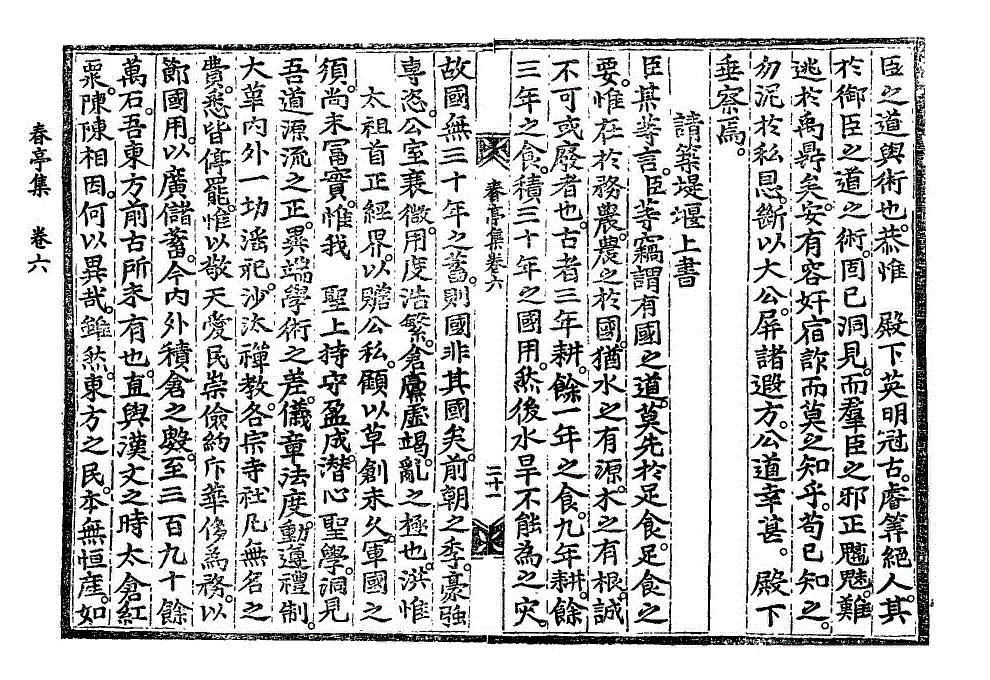 臣之道與術也。恭惟　殿下英明冠古。睿筭絕人。其
於御臣之道之術。固已洞見。而羣臣之邪正魑魅。難
逃於禹鼎矣。安有容奸宿詐而莫之知乎。苟已知之。
勿泥於私恩。斷以大公。屛諸遐方。公道幸甚。　殿下
垂察焉。
請築堤堰上書
臣某等言。臣等竊謂有國之道。莫先於足食。足食之
要。惟在於務農。農之於國。猶水之有源。木之有根。誠
不可或廢者也。古者三年耕。餘一年之食。九年耕。餘
三年之食。積三十年之國用。然後水旱不能為之灾。
春亭集卷六
二十一
故國無三十年之蓄。則國非其國矣。前朝之季。豪强
專恣。公室衰微。用度浩繁。倉廩虛竭。亂之極也。洪惟
太祖首正經界。以贍公私。顧以草創未久。軍國之
須。尚未富實。惟我　聖上持守盈成。潛心聖學。洞見
吾道源流之正。異端學術之差。儀章法度。動遵禮制。
大革內外一切潘祀。沙汰禪教。各宗寺社凡無名之
費。悉皆停罷。惟以敬天愛民崇儉約斥華侈為務。以
節國用。以廣儲蓄。今內外積倉之數。至三百九十餘
萬石。吾東方前古所未有也。直與漢文之時太倉紅
粟。陳陳相因。何以異哉。雖然。東方之民。本無恒產。如
春亭集　卷六